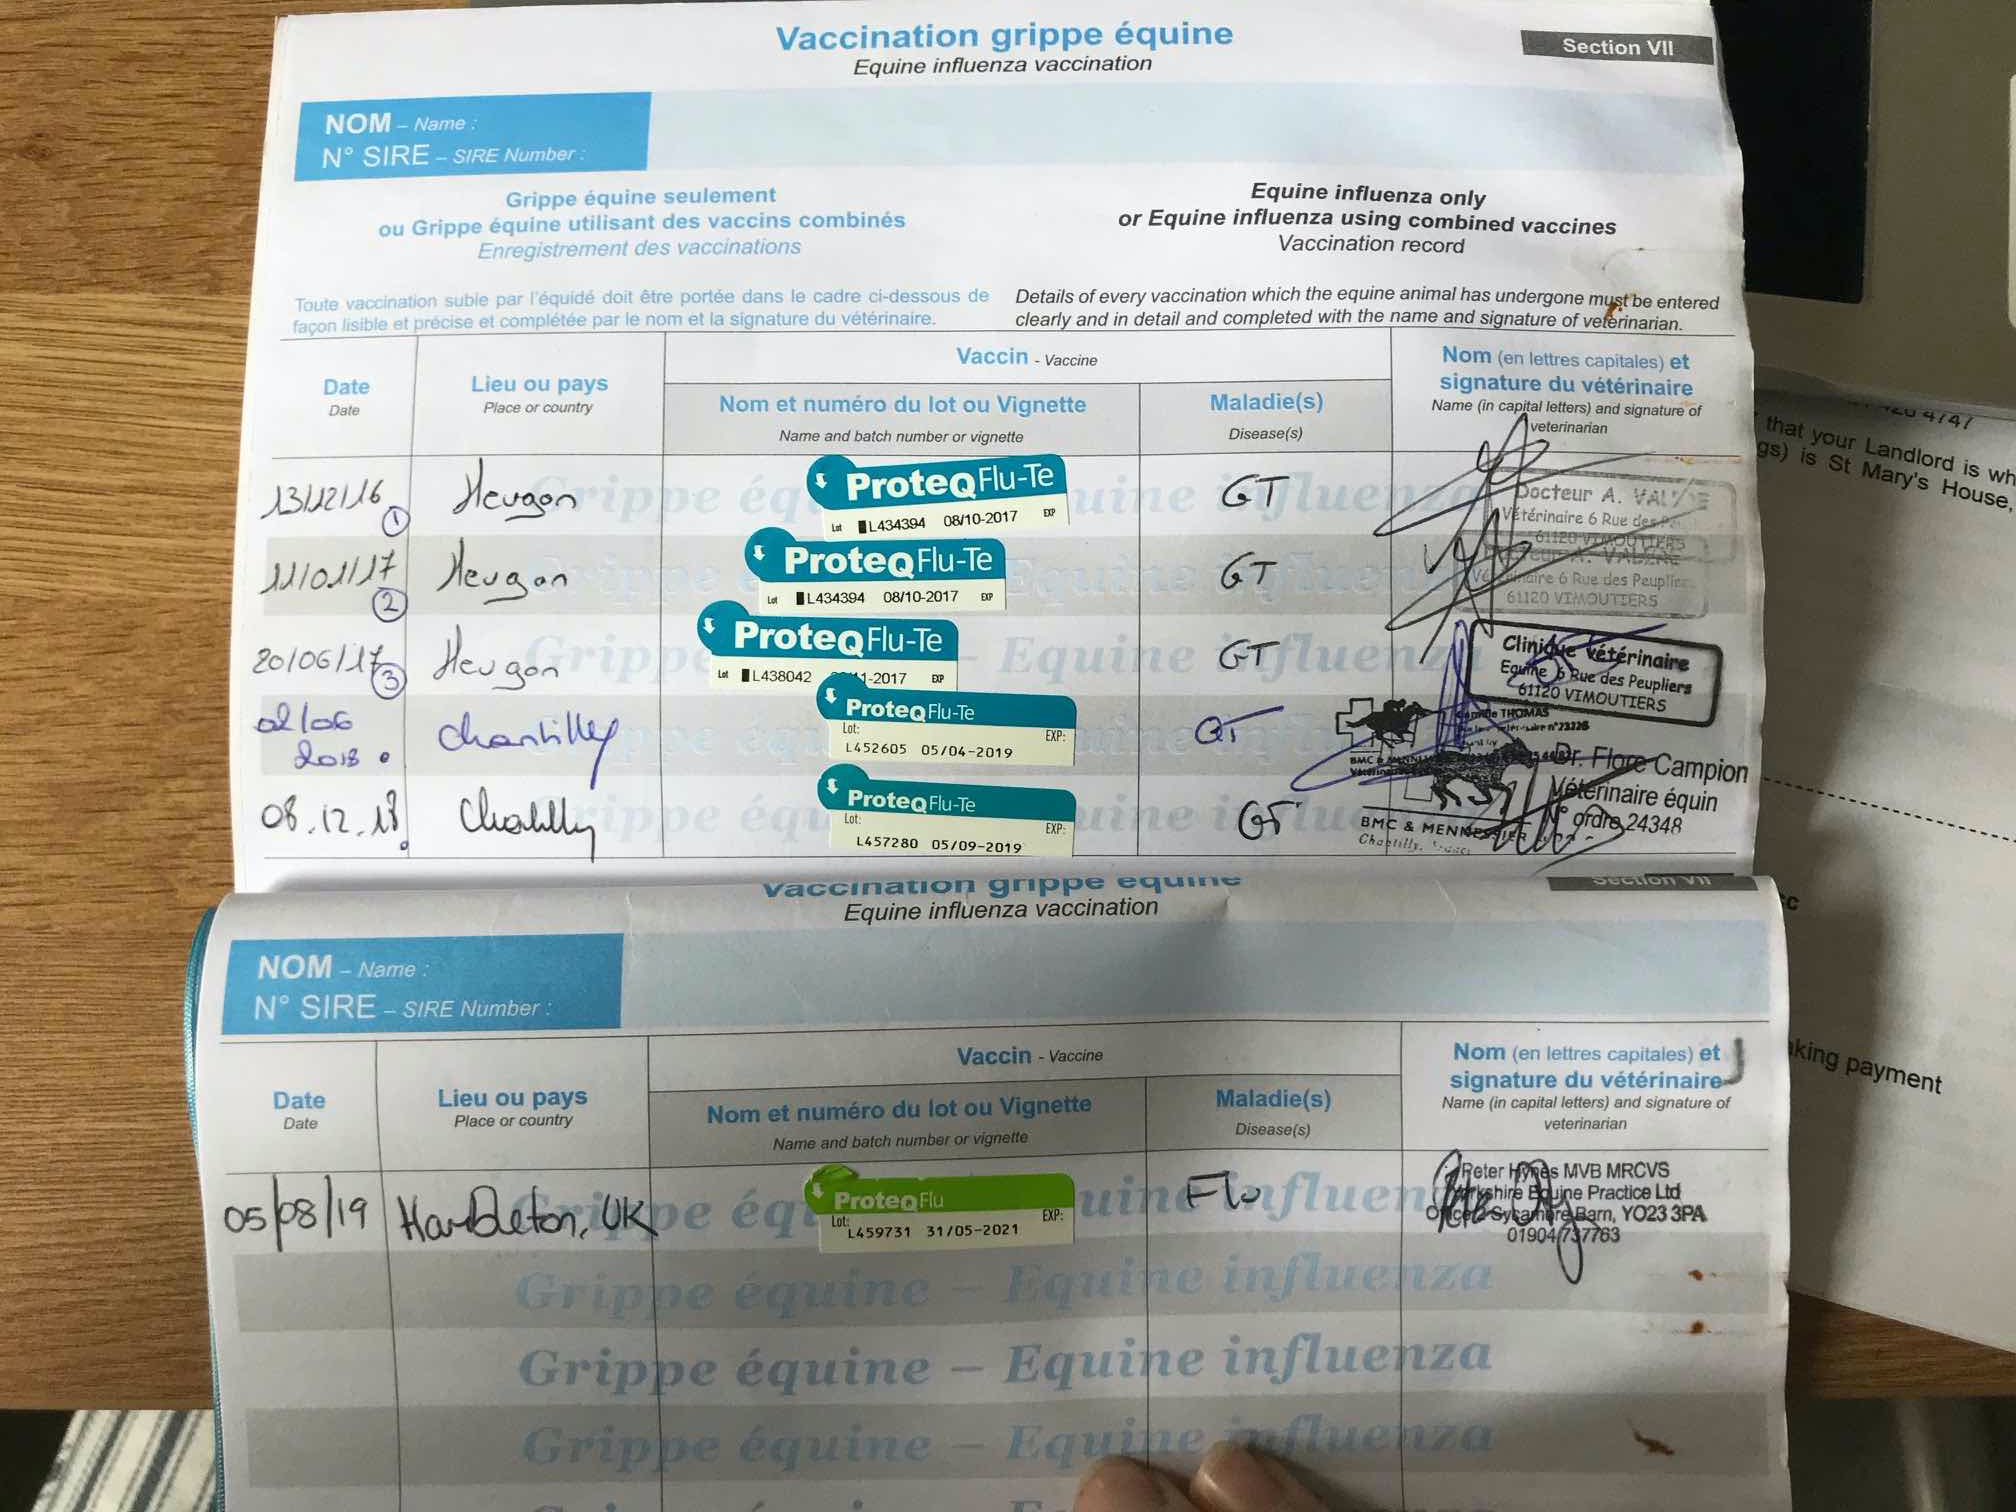 Vaccination grippe équine
Equine influenza vaccination
Section VII
NOM – Name :
N° SIRE – SIRE Number :
Grippe équine seulement
ou Grippe équine utilisant des vaccins combinés
Enregistrement des vaccinations
Equine influenza only
or Equine influenza using combined vaccines
Vaccination record
Toute vaccination subie par l'équidé doit être portée dans le cadre ci-dessous de
façon lisible et précise et complétée par le nom et la signature du vétérinaire.
Details of every vaccination which the equine animal has undergone must be entered
clearly and in detail and completed with the name and signature of veterinarian.
Date
Date
Lieu ou pays
Place or country
Vaccin - Vaccine
Nom et numéro du lot ou Vignette
Name and batch number or vignette
Maladie(s)
Disease(s)
Nom (en lettres capitales) et
signature du vétérinaire
Name (in capital letters) and signature of
veterinarian
13/12/16 1
Heugon
ProteqFlu-Te
Lot L434394 08/10-2017 EXP
GT
Docteur A.
Vétérinaire 6 Rue des
61120 VIMOUTIERS
11/01/17 2
Heugon
ProteqFlu-Te
Lot L434394 08/10-2017 EXP
GT
6 Rue des Peupliers
61120 VIMOUTIERS
20/06/17 3
Heugon
ProteqFlu-Te
Lot L438042 -2017 EXP
GT
Clinique vétérinaire
Equine 6 Rue des Peupliers
61120 VIMOUTIERS
02/06
2018
Chantilly
ProteqFlu-Te
Lot: EXP:
L452605 05/04-2019
GT
THOMAS
08.12.18
Chantilly
ProteqFlu-Te
Lot: EXP:
L457280 05/09-2019
GT
Dr. Flore Campion
Vétérinaire équin
N° ordre 24348
BMC & MENNESSIER
Chantilly,
Vaccination grippe équine
Equine influenza vaccination
Section VII
NOM – Name :
N° SIRE – SIRE Number :
Date
Date
Lieu ou pays
Place or country
Vaccin - Vaccine
Nom et numéro du lot ou Vignette
Name and batch number or vignette
Maladie(s)
Disease(s)
Nom (en lettres capitales) et
signature du vétérinaire
Name (in capital letters) and signature of
veterinarian
05/08/19
Hambleton, UK
ProteqFlu
Lot: EXP:
L459731 31/05-2021
Flu
Peter Hynes MVB MRCVS
Yorkshire Equine Practice Ltd
Office 2 Sycamore Barn, YO23 3PA
01904 737763
Grippe équine – Equine influenza
Grippe équine – Equine influenza
Grippe équine – Equine influenza
4747
that your Landlord is wh
gs) is St Mary's House,
king payment